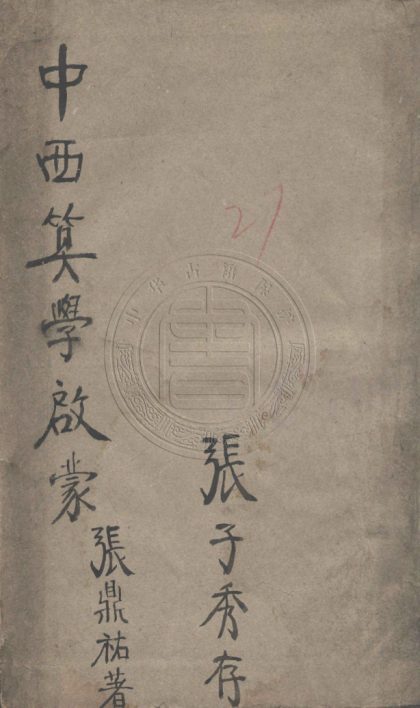 張子秀存
中西算學啟蒙
張鼎祐著
21